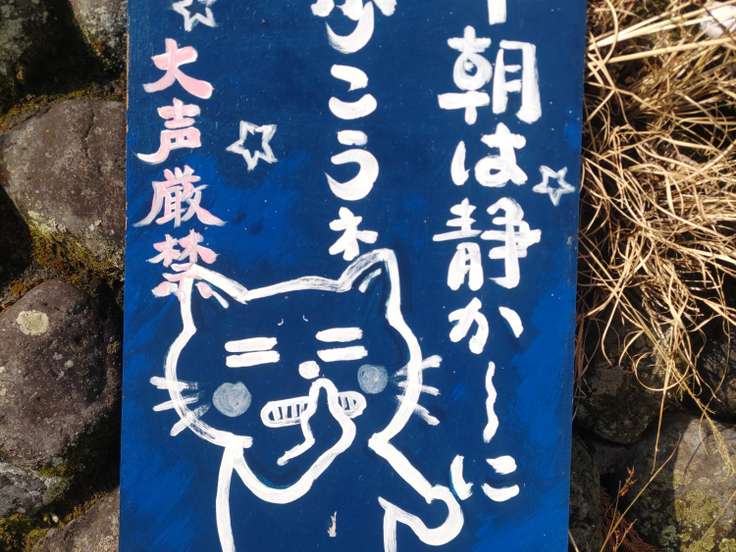 朝は静か〜に
こうネ
大声厳禁